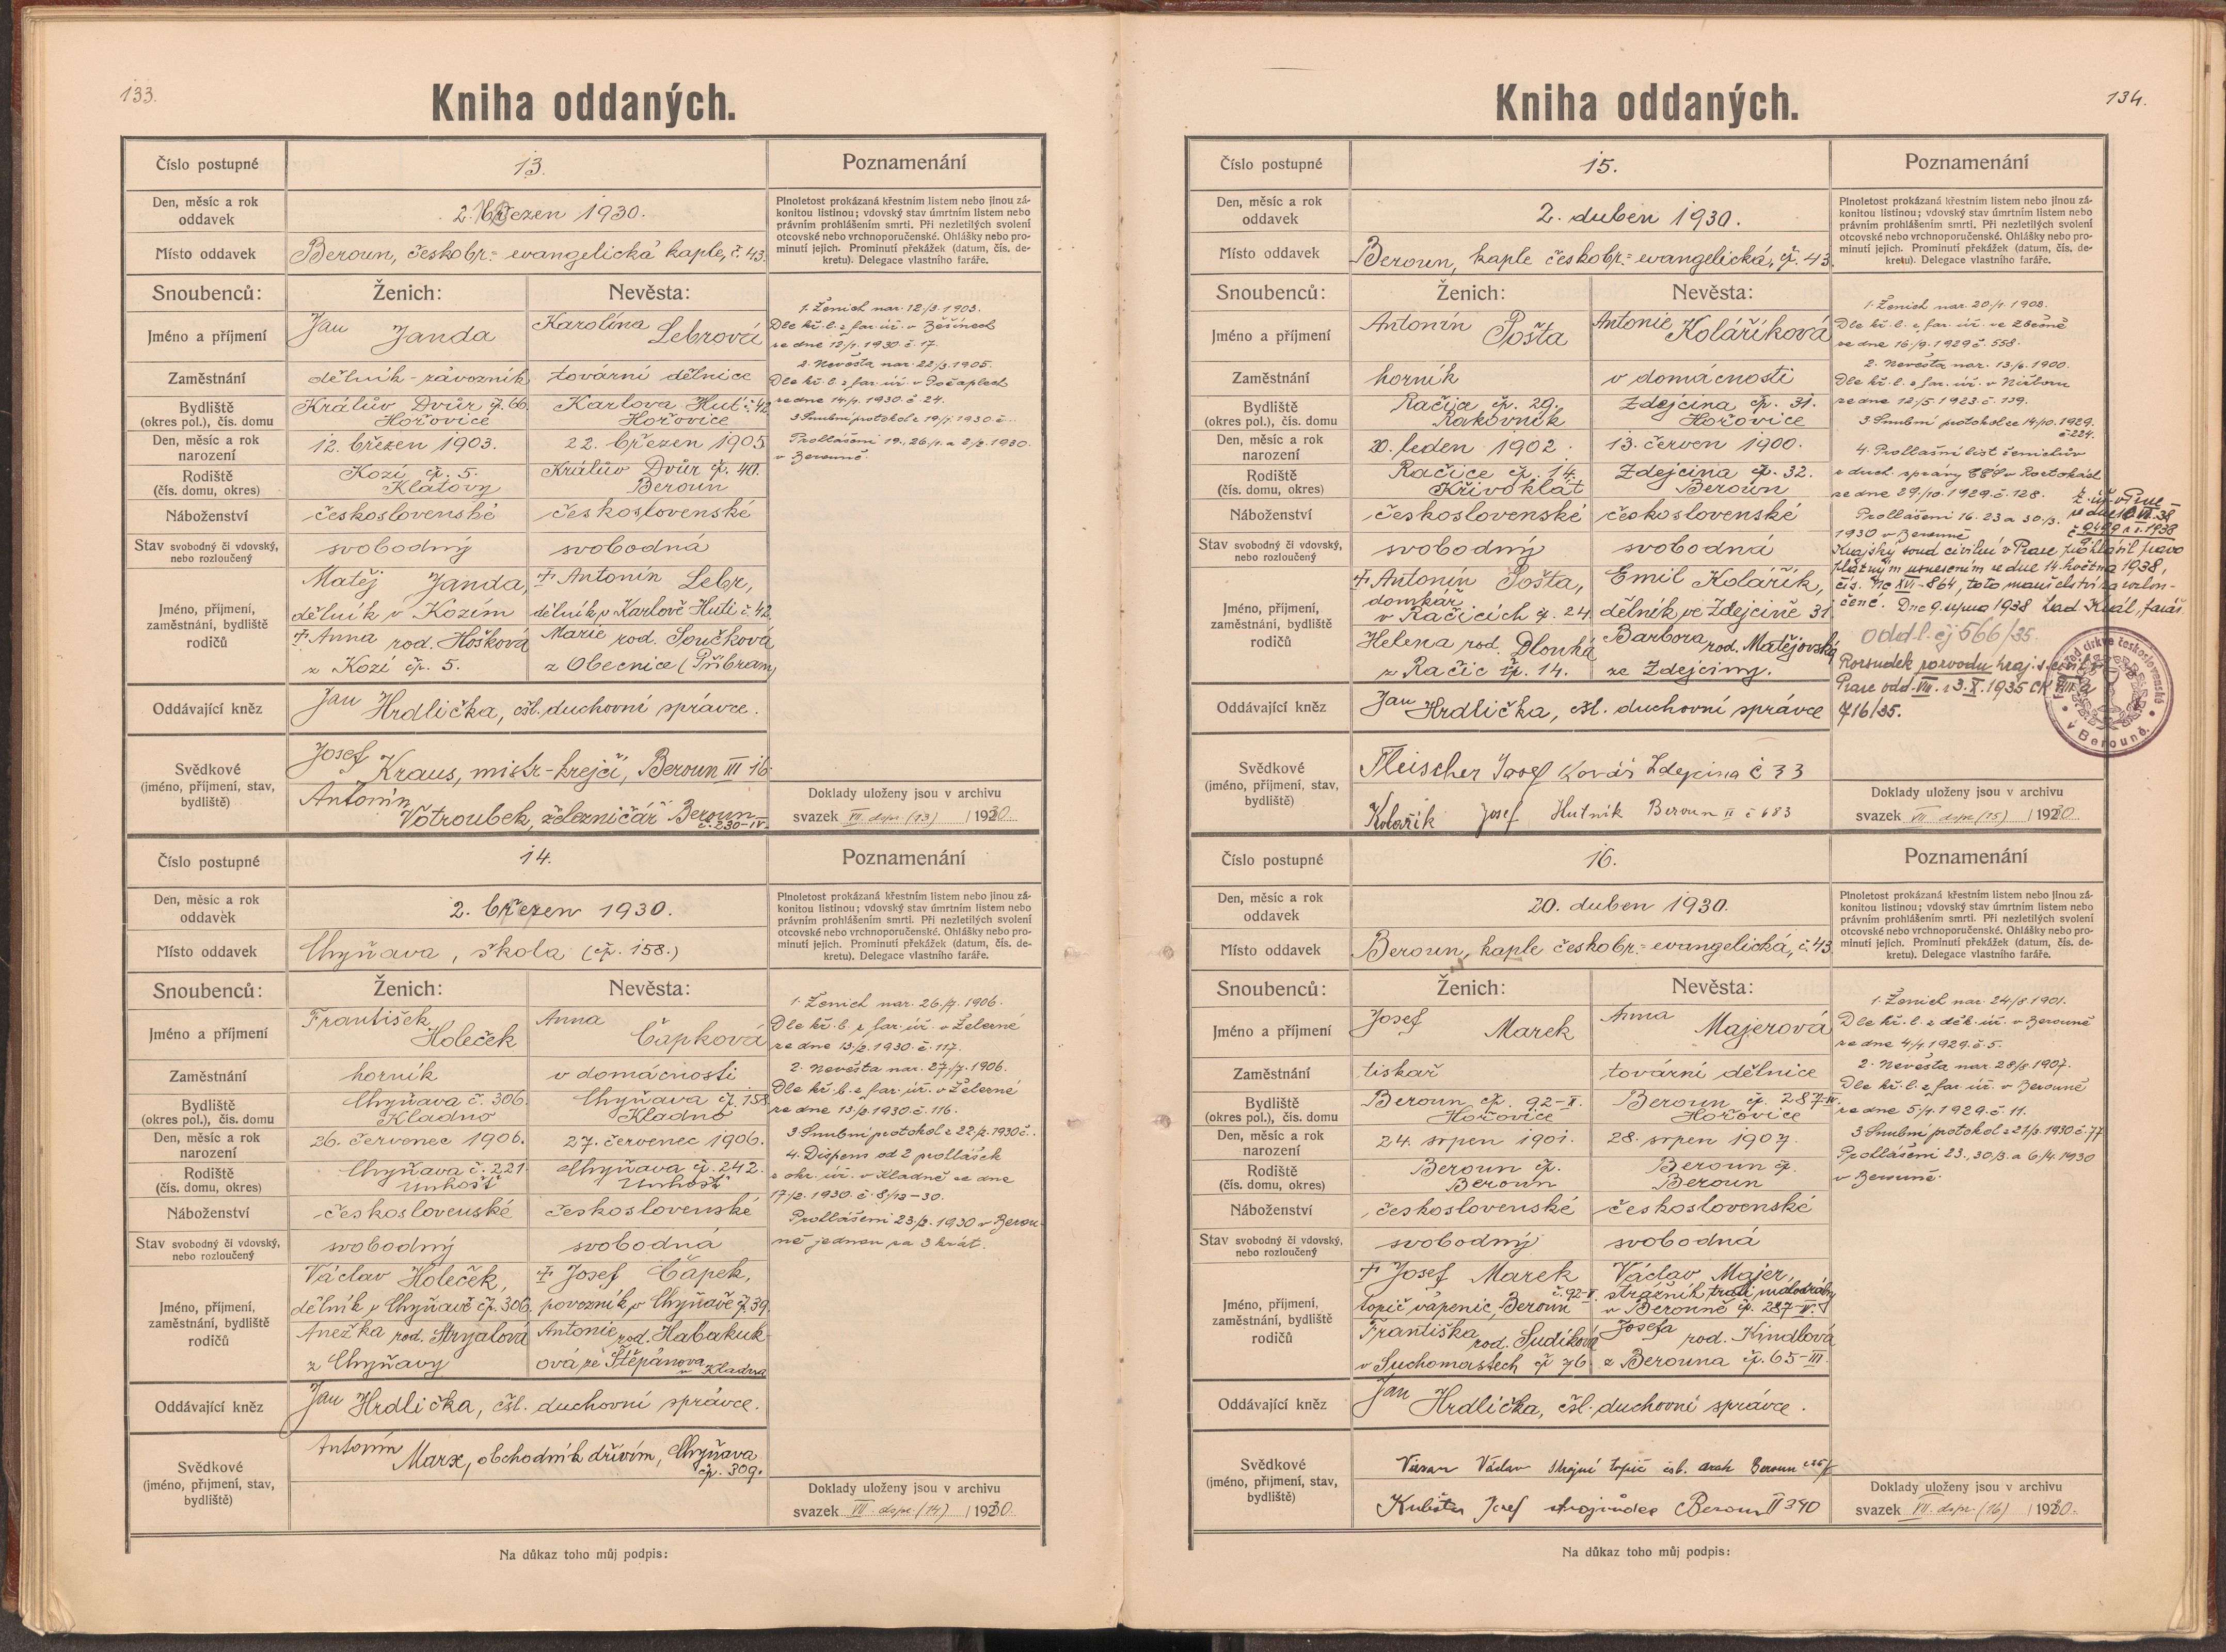 133.
Kniha oddaných.
Číslo postupné 13. Poznamenání
Den, měsíc a rok oddavek 2. březen 1930.
Plnoletost prokázaná křestním listem nebo jinou zá-
konitou listinou; vdovský stav úmrtním listem nebo
právním prohlášením smrti. Při nezletilých svolení
otcovské nebo vrchnoporučenské. Ohlášky nebo pro-
minutí jejich. Prominutí překážek (datum, čís. de-
kretu). Delegace vlastního faráře.
Místo oddavek Beroun, českobr.= evangelická kaple, č. 43.
Snoubenců: Ženich: Nevěsta:
Jméno a příjmení Jan Janda Karolína Lebrová
Zaměstnání dělník-závozník tovární dělnice
Bydliště Králův Dvůr čp. 66. Karlova Huť č. 42
(okres pol.), čís. domu Hořovice Hořovice
Den, měsíc a rok narození 12. březen 1903. 22. březen 1905
Rodiště Kozí čp. 5. Králův Dvůr čp. 40.
(čís. domu, okres) Klatovy Beroun
Náboženství československé československé
Stav svobodný či vdovský, nebo rozloučený svobodný svobodná
Jméno, příjmení, zaměstnání, bydliště rodičů
Matěj Janda, † Antonín Lebr,
dělník v Kozím dělník v Karlově Huti č. 42.
† Anna rod. Hošková Marie rod. Součková
z Kozí čp. 5. z Obecnice (Příbram)
Oddávající kněz Jan Hrdlička, čsl. duchovní správce.
Svědkové (jméno, příjmení, stav, bydliště)
Josef Kraus, mistr-krejčí, Beroun III 16
Antonín Votroubek, železničář Beroun
č. 230-IV.
1. Ženich nar. 12/3. 1903.
Dle kř. l. z far. úř. v
ze dne 12/1. 1930. č. 17.
2. Nevěsta nar. 22/3. 1905.
Dle kř. l. z far. úř. v Počaplech
ze dne 14/1. 1930. č. 24.
3. Snubní protokol z 19/1. 1930 č.
Prohlášení 19., 26/1. a 2/2. 1930.
v Berouně.
Doklady uloženy jsou v archivu
svazek VII. dspr. (13) 1930.
Číslo postupné 14. Poznamenání
Den, měsíc a rok oddavek 2. březen 1930.
Plnoletost prokázaná křestním listem nebo jinou zá-
konitou listinou; vdovský stav úmrtním listem nebo
právním prohlášením smrti. Při nezletilých svolení
otcovské nebo vrchnoporučenské. Ohlášky nebo pro-
minutí jejich. Prominutí překážek (datum, čís. de-
kretu). Delegace vlastního faráře.
Místo oddavek Chyňava, škola (čp. 158.)
Snoubenců: Ženich: Nevěsta:
Jméno a příjmení František Holeček Anna Čapková
Zaměstnání horník v domácnosti
Bydliště Chyňava č. 306. Chyňava čp. 158.
(okres pol.), čís. domu Kladno Kladno
Den, měsíc a rok narození 26. červenec 1906. 27. červenec 1906.
Rodiště Chyňava č. 221 Chyňava čp. 242.
(čís. domu, okres) Unhošť Unhošť
Náboženství československé československé
Stav svobodný či vdovský, nebo rozloučený svobodný svobodná
Jméno, příjmení, zaměstnání, bydliště rodičů
Václav Holeček, † Josef Čapek,
dělník v Chyňavě čp. 306. povozník v Chyňavě čp. 39.
Anežka rod. Stryalová Antonie rod. Habakuk-
z Chyňavy ová ze Štěpánova u Kladna
Oddávající kněz Jan Hrdlička, čsl. duchovní správce.
Svědkové (jméno, příjmení, stav, bydliště)
Antonín Marx, obchodník dřívím, Chyňava
čp. 309.
1. Ženich nar. 26./7. 1906.
Dle kř. l. z far. úř. v Železné
ze dne 13/2. 1930. č. 117.
2. Nevěsta nar. 27/7. 1906.
Dle kř. l. z far. úř. v Železné
ze dne 13/2. 1930. č. 116.
3. Snubní protokol z 22/2. 1930 č.
4. Dispens od 2 prohlášek
z okr. úř. v Kladně ze dne
17/2. 1930. č. 8/12-30.
Prohlášení 23/2. 1930 v Berou-
ně jednou za 3 krát.
Doklady uloženy jsou v archivu
svazek VII. dspr. (14) 1930.
Na důkaz toho můj podpis:
134.
Kniha oddaných.
Číslo postupné 15. Poznamenání
Den, měsíc a rok oddavek 2. duben 1930.
Plnoletost prokázaná křestním listem nebo jinou zá-
konitou listinou; vdovský stav úmrtním listem nebo
právním prohlášením smrti. Při nezletilých svolení
otcovské nebo vrchnoporučenské. Ohlášky nebo pro-
minutí jejich. Prominutí překážek (datum, čís. de-
kretu). Delegace vlastního faráře.
Místo oddavek Beroun, kaple českobr.= evangelická, čp. 43.
Snoubenců: Ženich: Nevěsta:
Jméno a příjmení Antonín Pošta Antonie Koláříková
Zaměstnání horník v domácnosti
Bydliště Račice čp. 29. Zdejcina čp. 31.
(okres pol.), čís. domu Rakovník Hořovice
Den, měsíc a rok narození 20. leden 1902. 13. červen 1900.
Rodiště Račice čp. 14. Zdejcina čp. 32.
(čís. domu, okres) Křivoklát Beroun
Náboženství československé československé
Stav svobodný či vdovský, nebo rozloučený svobodný svobodná
Jméno, příjmení, zaměstnání, bydliště rodičů
† Antonín Pošta, Emil Kolářík,
domkář v Račicích čp. 24. dělník ve Zdejcině 31.
Helena rod. Dlouhá Barbora rod. Matějovská
z Račic čp. 14. ze Zdejciny.
Oddávající kněz Jan Hrdlička, čsl. duchovní správce
Svědkové (jméno, příjmení, stav, bydliště)
Fleischer Josef Kovář Zdejcina č 33
Kolařík Josef Hutník Beroun II č 683
1. Ženich nar. 20/1. 1902.
Dle kř. l. z far. úř. ve Zbečně
ze dne 16/9. 1929 č. 558.
2. Nevěsta nar. 13/6. 1900.
Dle kř. l. z far. úř. v Nižboru
ze dne 12/5. 1923. č. 139.
3. Snubní protokol ze 14/10. 1929.
č. 224.
4. Prohlášní list ženichův
z duch. správy CČS v Roztokách
ze dne 29/10. 1929. č. 128.
Prohlášení 16. 23 a 30/3.
1930 v Berouně
Krajský soud civilní v Praze prohlásil pravo-
platným usnesením ze dne 14. května 1938,
čís. Nc XVI-864, toto manželství za rozlou-
čené. Dne 9. srpna 1938 Lad. Král, farář.
Oddl. čj 566/35.
Rozsudek rozvodu kraj. s. civil.
Praze odd. VIII. z 3. X. 1935 CK VIII a
716/35.
církve československé
v Berouně.
Doklady uloženy jsou v archivu
svazek VII dspr. (15) 1930.
Číslo postupné 16. Poznamenání
Den, měsíc a rok oddavek 20. duben 1930.
Plnoletost prokázaná křestním listem nebo jinou zá-
konitou listinou; vdovský stav úmrtním listem nebo
právním prohlášením smrti. Při nezletilých svolení
otcovské nebo vrchnoporučenské. Ohlášky nebo pro-
minutí jejich. Prominutí překážek (datum, čís. de-
kretu). Delegace vlastního faráře.
Místo oddavek Beroun, kaple českobr.= evangelická, č. 43
Snoubenců: Ženich: Nevěsta:
Jméno a příjmení Josef Marek Anna Majerová
Zaměstnání tiskař tovární dělnice
Bydliště Beroun čp. 92-II. Beroun čp. 287-IV.
(okres pol.), čís. domu Hořovice Hořovice
Den, měsíc a rok narození 24. srpen 1901. 28. srpen 1907.
Rodiště Beroun čp. Beroun čp.
(čís. domu, okres) Beroun Beroun
Náboženství československé československé
Stav svobodný či vdovský, nebo rozloučený svobodný svobodná
Jméno, příjmení, zaměstnání, bydliště rodičů
† Josef Marek Václav Majer,
topič vápenic, Beroun č. 92-II. strážník trati
v Berouně čp. 287-IV.
Františka rod. Sudíková Josefa rod. Kindlová
v Suchomastech čp 76 z Berouna čp. 65-III.
Oddávající kněz Jan Hrdlička, čsl. duchovní správce.
Svědkové (jméno, příjmení, stav, bydliště)
Václav strojní topič čsl. drah Beroun
Kubišta Josef strojvůdce Beroun II 390
1. Ženich nar. 24/8. 1901.
Dle kř. l. z děk. úř. v Berouně
ze dne 4/1. 1929. č. 5.
2. Nevěsta nar. 28/8 1907.
Dle kř. l. z far. úř. v Berouně
ze dne 5/1. 1929. č. 11.
3. Snubní protokol z 21/3. 1930 č. 77
Prohlášení 23., 30/3. a 6/4. 1930
v Berouně.
Doklady uloženy jsou v archivu
svazek VII. dspr. (16) 1930.
Na důkaz toho můj podpis: